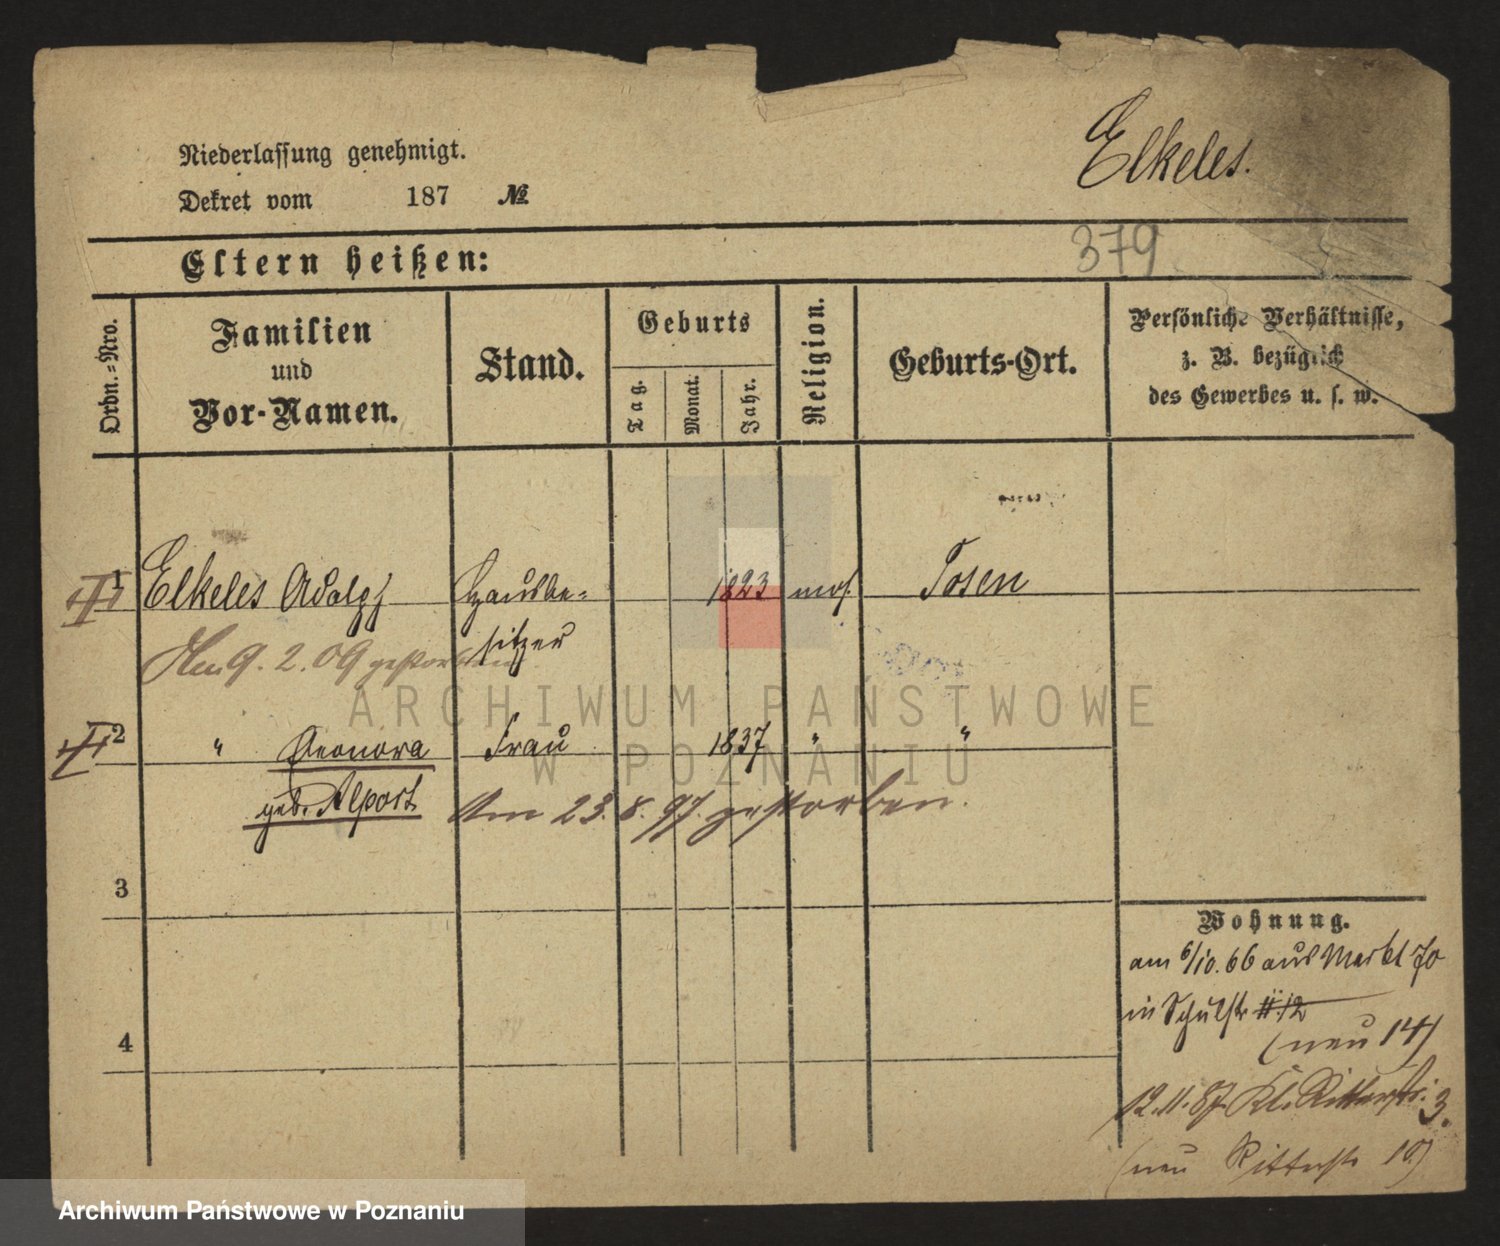 Elkeles.
Niederlassung genehmigt.
Dekret vom 187 №
379
Eltern heißen:
Ordn.-Nro.
Familien
und
Vor-Namen.
Stand.
Geburts
Tag.
Monat.
Jahr.
Religion.
Geburts-Ort.
Persönliche Verhältnisse,
z. B. bezüglich
des Gewerbes u. s. w.
1 Elkeles Adolph Hausbe= 1823 mos. Posen
sitzer
Am 9. 2. 09 gestorben
ARCHIWUM PAŃSTWOWE
W POZNANIU
2 " Leonora Frau 1837 " "
geb. Alport Am 23. 8. 97. gestorben.
3
4
Wohnung.
am 6/10. 66 aus Markt 70
in Schulstr 12
(neu 14)
12.11.87. Kl. Ritterstr. 3.
(neu Ritterstr 10)
Archiwum Państwowe w Poznaniu